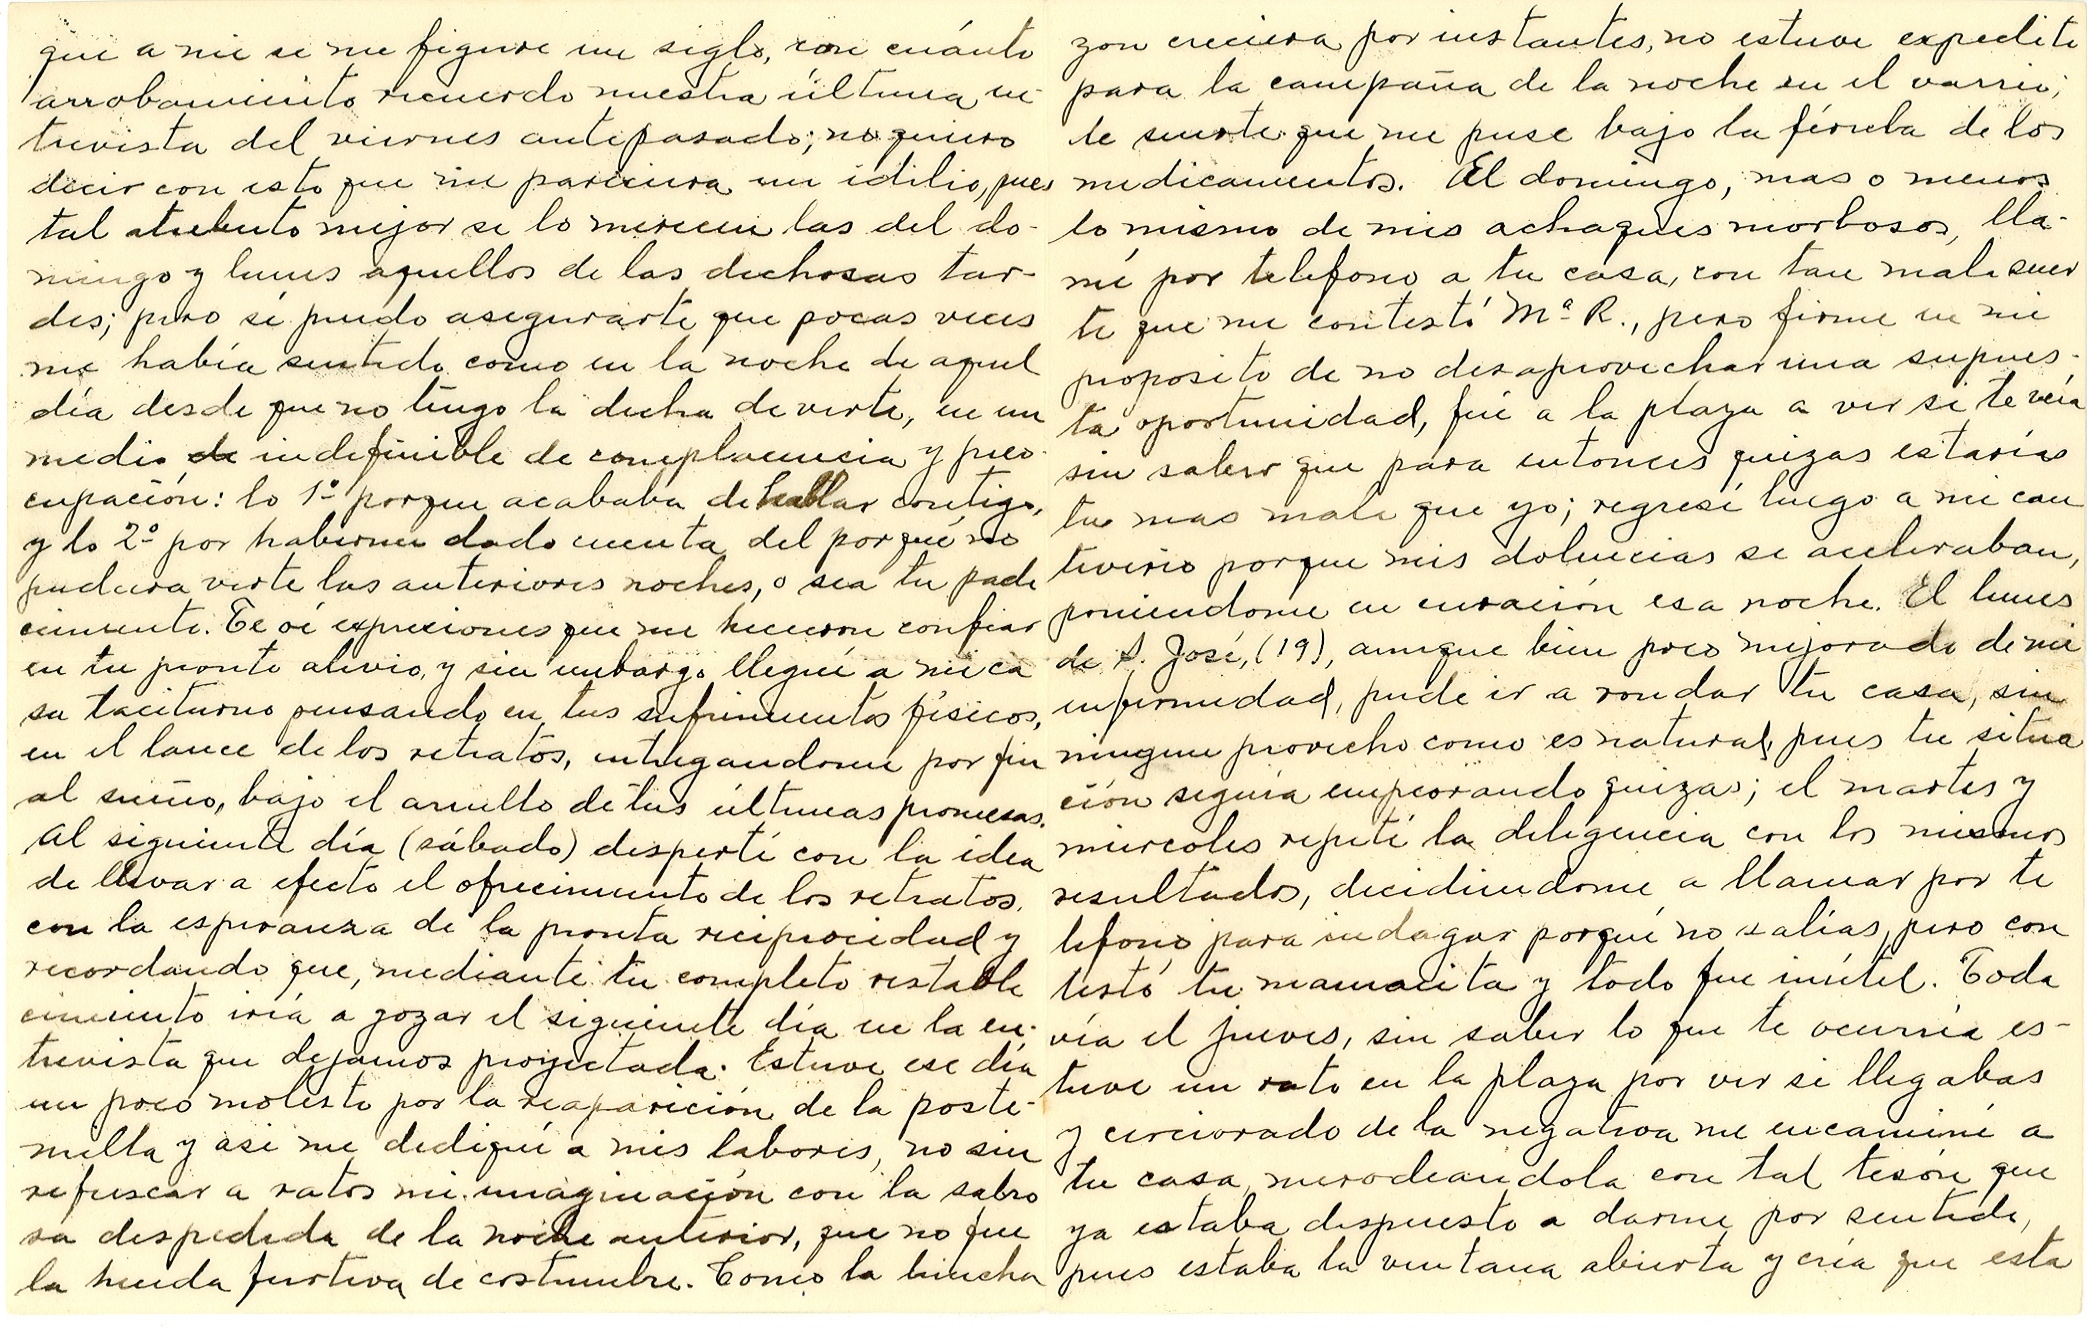 que a mi se me figura un siglo, con cuánto
arrobamiento recuerdo nuestra última en-
trevista del viernes antepasado; no quiero
decir con esto que me pareciera un idilio, pues
tal atributo mejor se lo merecen las del do-
mingo y lunes aquellos de las dichosas tar-
des; pero sí puedo asegurarte que pocas veces
me había sentido como en la noche de aquel
día desde que no tengo la dicha de verte, en un
medio de indefinible de complacencia y preo-
cupación: lo 1º porque acababa de hablar contigo,
y lo 2º por haberme dado cuenta del porqué no
pudiera verte las anteriores noches, o sea tu pade
cimiento. Te oí expresiones que me hicieron confiar
en tu pronto alivio, y sin embargo llegué a mi ca
sa taciturno pensando en tus sufrimientos físicos,
en el lance de los retratos, entregandome por fin
al sueño, bajo el arrullo de tus últimas promesas.
Al siguiente día (sábado) desperté con la idea
de llevar a efecto el ofrecimiento de los retratos,
con la esperanza de la pronta reciprocidad y
recordando que, mediante tu completo restable
cimiento iría a gozar el siguiente día en la en-
trevista que dejamos proyectada. Estuve ese día
un poco molesto por la reaparición de la poste-
milla y asi me dediqué a mis labores, no sin
refrescar a ratos mi imaginación con la sabro
sa despedida de la noche anterior, que no fue
la huida furtiva de costumbre. Como la hincha
zon creciera por instantes, no estuve expedito
para la campaña de la noche en el varrio;
de suerte que me puse bajo la férula de los
medicamentos. El domingo, mas o menos
lo mismo de mis achaques morbosos, lla-
mé por telefono a tu casa, con tan mala suer
te que me contestó Mª R., pero firme en mi
proposito de no desaprovechar una supues-
ta oportunidad, fuí a la plaza a ver si te veía
sin saber que para entonces quizas estarías
tu mas mala que yo; regresé luego a mi cau
tiverio porque mis dolencias se aceleraban,
poniendome en curación esa noche. El lunes
de S. José, (19), aunque bien poco mejorado de mi
enfermedad, pude ir a rondar tu casa, sin
ningun provecho como es natural, pues tu situa
ción seguía empeorando quizas; el martes y
miercoles repetí la diligencia con los mismos
resultados, decidiendome a llamar por te
lefono para indagar porqué no salías, pero con
testó tu mamacita y todo fue inútil. Toda
vía el jueves, sin saber lo que te ocurría es-
tuve un rato en la plaza por ver si llegabas
y cerciorado de la negativa me encaminé a
tu casa, merodeandola con tal tesón que
ya estaba dispuesto a darme por sentido,
pues estaba la ventana abierta y creía que esta